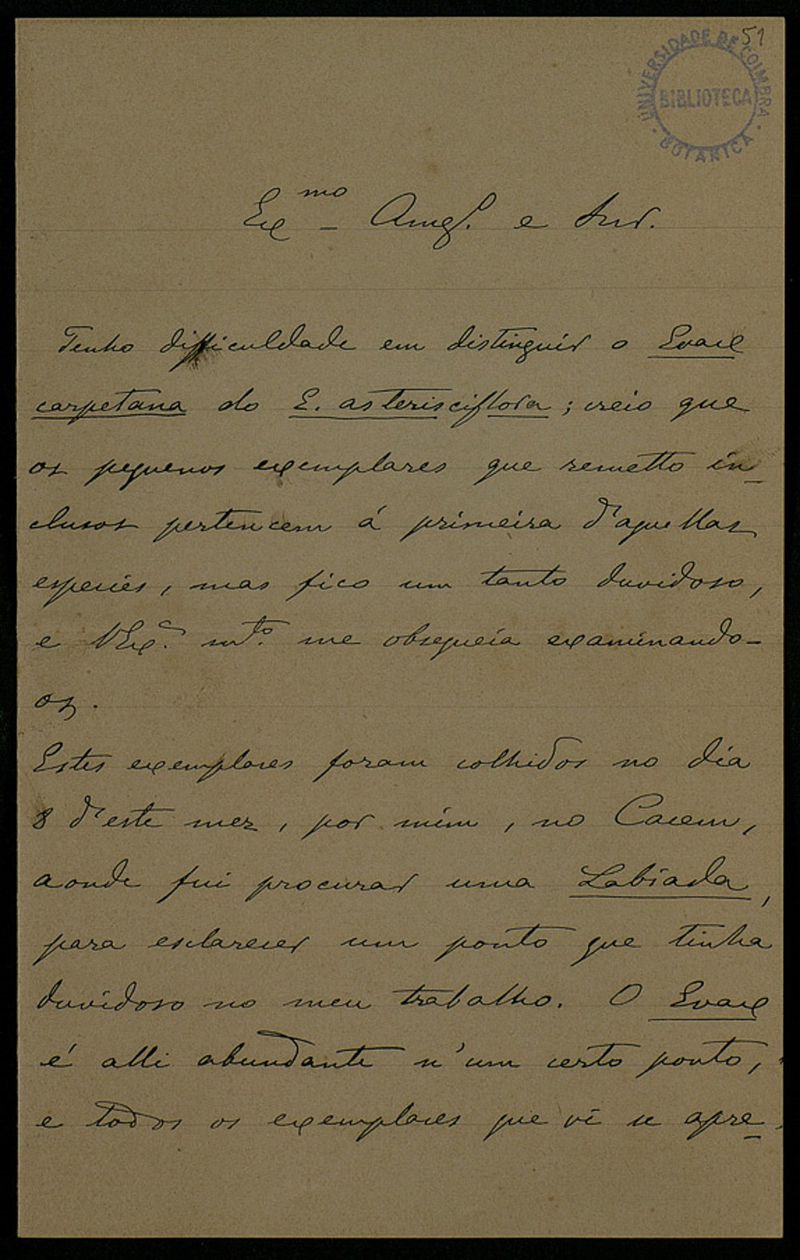 51
UNIVERSIDADE DE COIMBRA
BIBLIOTECA
BOTANICA
Ex.mo Amg.o e Snr.
Tenho difficuldade em distinguir o Evax
carpetana do E. asterisciflora; creio que
os pequenos exemplares que remetto in-
clusos pertencem á primeira d'aquellas
especies, mas fico um tanto duvidoso,
e V Ex.a mt.o me obsequeia examinando-
os.
Estes exemplares foram colhidos no dia
8 d'este mez, por mim, no Cacem,
aonde fui procurar uma Labiada,
para esclarecer um ponto que tinha
duvidoso no meu trabalho. O Evax
é alli abundante n'um certo ponto,
e todos os exemplares que vi se apre-